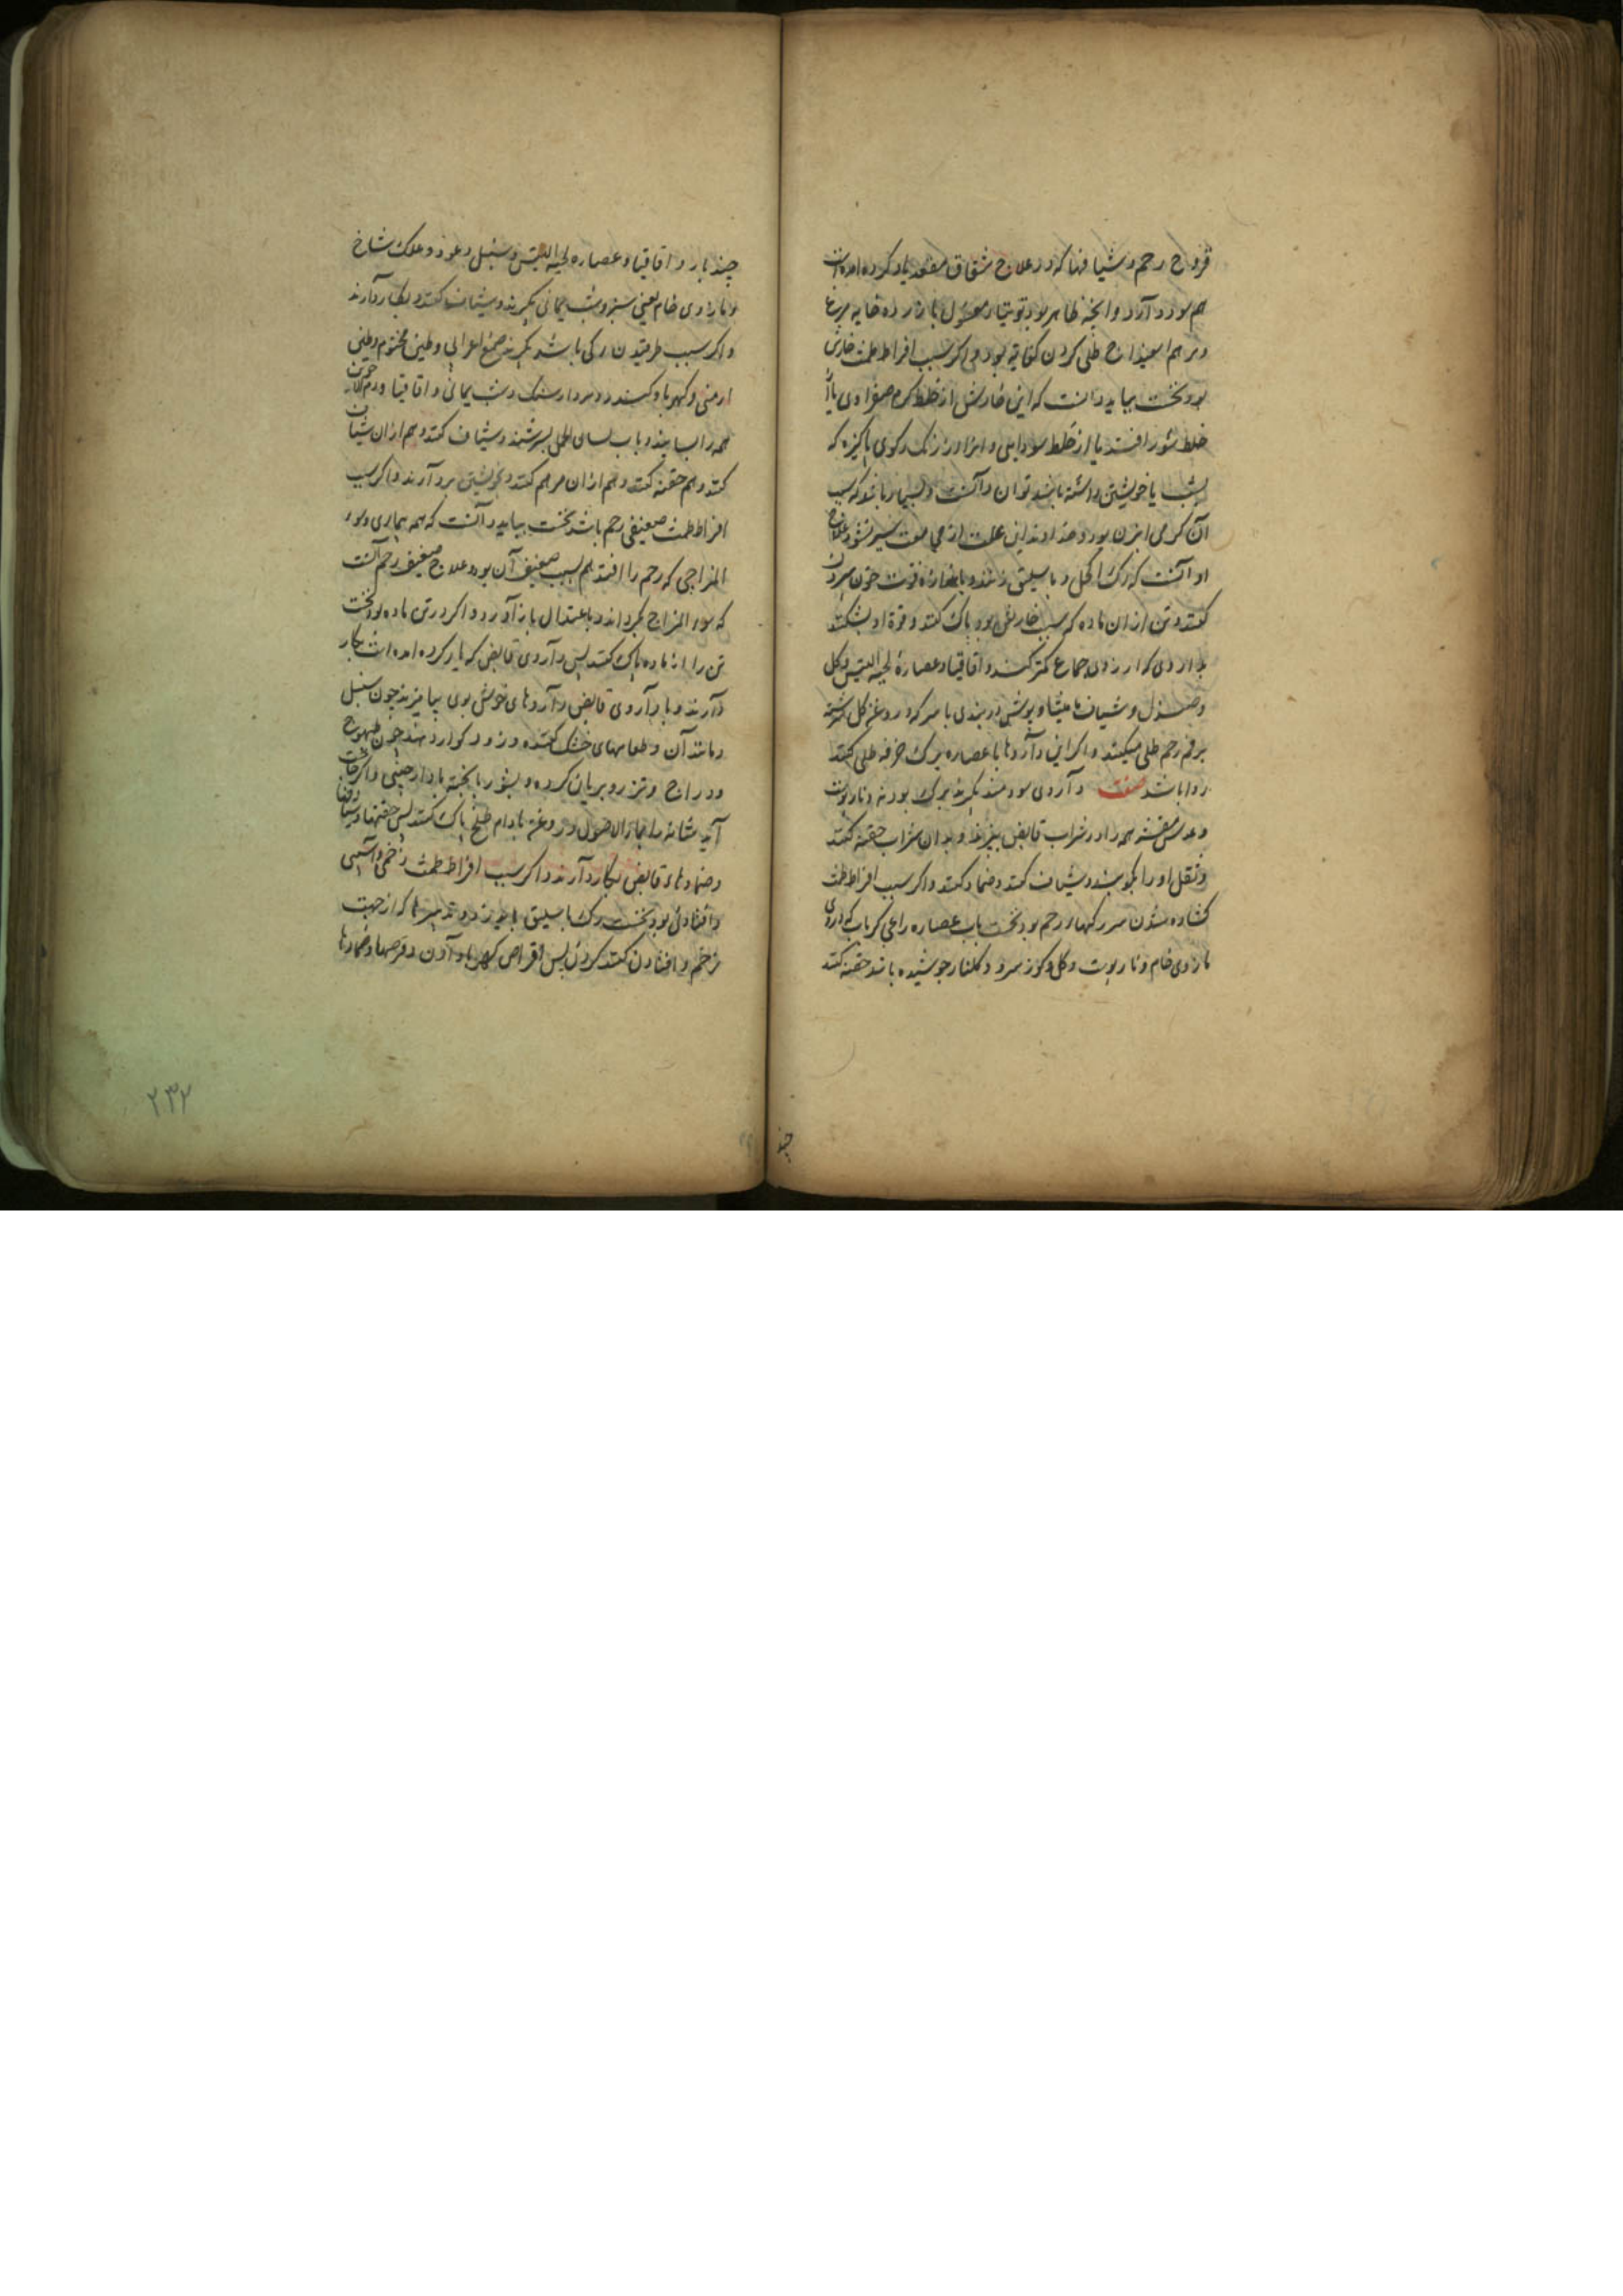 قروح رحم و شیافها که در علاج شقاق مقعد یاد کرده امده است
هم سود دارد وانجه ظاهر بود توتیاء مغسول با زرده خایه مرغ
و مرهم اسفیداج طلی کردن کفایه بود و اکر سبب افراط طمث خارش
بود نخست بباید دانست که این خارش از خلط کرم صفراوی یا از
خلط شور افتد یا از خلط سودایی و از رنک رکوی باکیزه که
بشب با خویشتن داشته باشد توان دانست و بسیار باشد که سبب
آن کرمی بود و خداوند این علت از مجامعت سیر نشود علاج
او آنست که رک اکحل و باسلیق زنند و باندازه قوت خون بیرون
کنند و تن از ان ماده که سبب خارش بود باک کنند و قوة او بشکنند
بداروی که ارزوی جماع کمتر کند و اقاقیا و عصارۀ لحیه التیس و کل
و صندل و شیاف مامیثا و بوش دربندی با سرکه و روغن کل سرشته
بر فم رحم طلی میکنند و اکر این داروها با عصاره برک خرفه طلی کنند
روا باشد صفت داروی سودمند بکیرند برک بودنه و نار بوست
و عدس مقشر همه را در شراب قابض ببزند و بدان شراب حقنه کنند
و ثقل او را بکوبند و شیاف کنند و ضماد کنند و اکر سبب افراط طمث
کشاده شدن سر رکهاء رحم بود نخست باب عصاره راعی کر باب که دروی
مازوی خام و نار بوست و کل و کوز سرو و کلنار جوشیده باشد حقنه کنند
چند
چند بار و اقاقیا و عصاره لحیه التیس و سنبل و عود و علوک شاخ
و مازوی خام یعنی سبز و شب یمانی بکیرند و شیاف کنند و بکار دارند
و اکر سبب طرقیدن رکی باشد بکیرند صمغ اعرابی و طین مختوم و طین
ارمنی و کهربا و کندر و مردارسنک و شب یمانی و اقاقیا و دم الاخوین
همه را بسایند و باب لسان الحمل بسرشند و شیاف کنند و هم از ان شیاف
کنند و هم حقنه کنند و هم از ان مرهم کنند و بخویشتن بردارند و اکر سبب
افراط طمث ضعیفی رحم باشد نخست بباید دانست که همه بیماری و سوء
المزاجی که رحم را افتد هم بسبب ضعیفی آن بود و علاج ضعیفی رحم آنست
که سوء المزاج بکرداند و باعتدال باز آورد و اکر در تن ماده بود نخست
تن را از ماده باک کنند بس داروی قابض که یاد کرده امده است بکار
دارند و با داروی قابض داروهای خوش بوی بیامیزند چون سنبل
و مانند آن و طعامهای خشک کننده و زود کوار دهند چون طیهوج
و دراج و تذرو بریان کرده و بشوربا بخته با دارجینی و اکر حاجت
آید مثانه را بماء الاصول و روغن بادام طلخ باک کنند بس حقنها و شیافها
و ضمادهای قابض بکار دارند و اکر سبب افراط طمث زخمی و آسیبی
و افتادنی بود نخست رک باسلیق باید زد و تدبیرها که از جهت
زخم و افتادن کنند کردن بس اقراص کهربا دادن و قرصها و ضمادها
۲۳۲